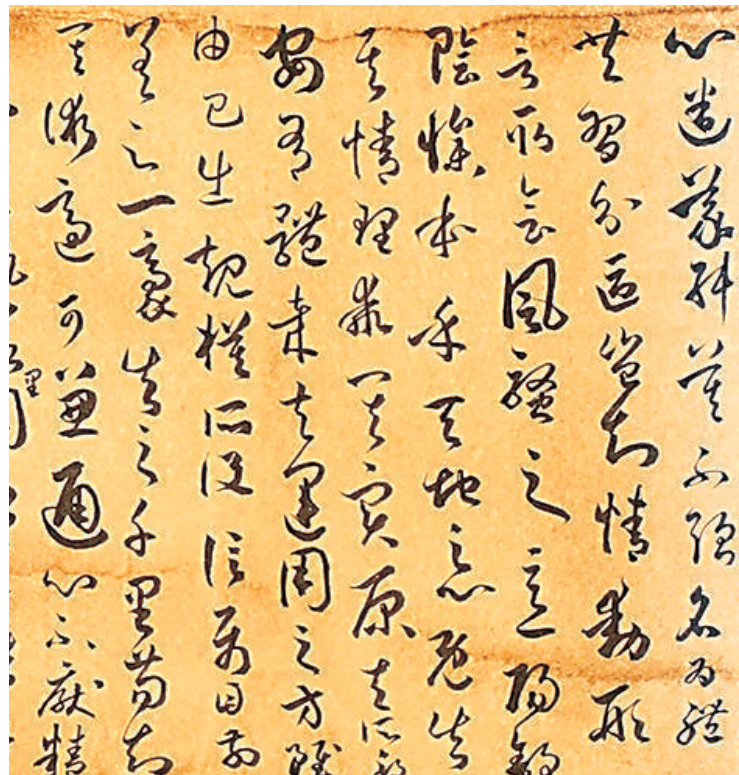 心迷義舛莫不強名為體
共習分區豈知情動形
言取會風騷之意陽舒
陰慘本乎天地之心既失
其情理乖其實原夫所致
安有體哉夫運用之方雖
由己出規模所設信屬目前
差之一豪失之千里苟知
其術適可兼通心不厭精